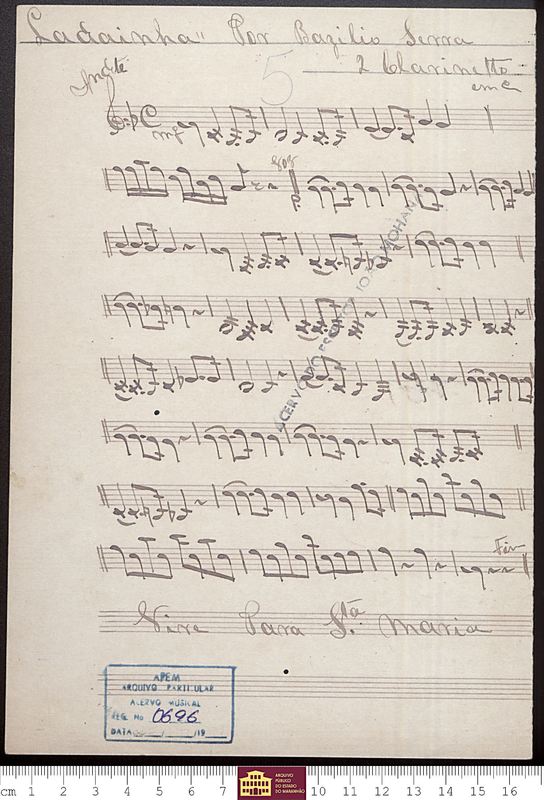 Ladainha" Por Bazilio Serra
5
2 Clarinetto
em C
And.te
C
mf
Sos
Fin
Vire Para S.ta Maria
ACERVO JOÃO MOHANA
APEM
ARQUIVO PARTICULAR
ACERVO MUSICAL
REG. No 0696
DATA / /19
cm 1 2 3 4 5 6 7 10 11 12 13 14 15 16
ARQUIVO
PÚBLICO
DO ESTADO
DO MARANHÃO